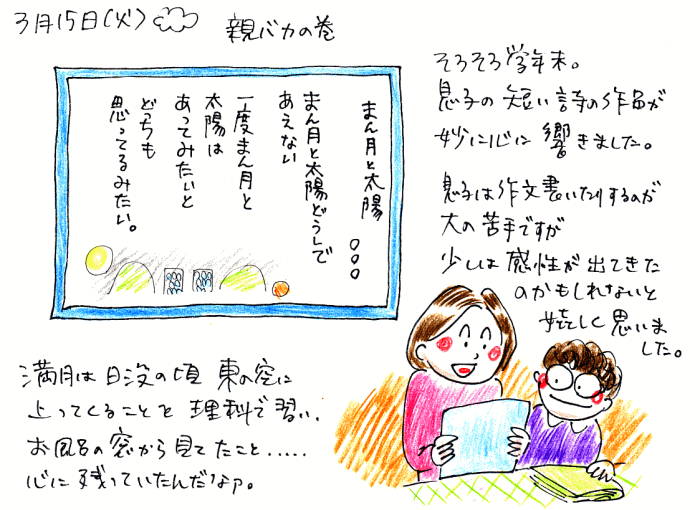 3月15日(火)
親バカの巻
まん月と太陽 ○○○
まん月と太陽どうしで
あえない
一度まん月と
太陽は
あってみたいと
どっちも
思ってるみたい。
そろそろ学年末。
息子の短い詩の作品が
妙に心に響きました。
息子は作文書いたりするのが
大の苦手ですが
少しは感性が出てきた
のかもしれないと
嬉しく思いま
した。
満月は日没の頃東の空に
上ってくることを理科で習い、
お風呂の窓から見てたこと......
心に残っていたんだなァ。